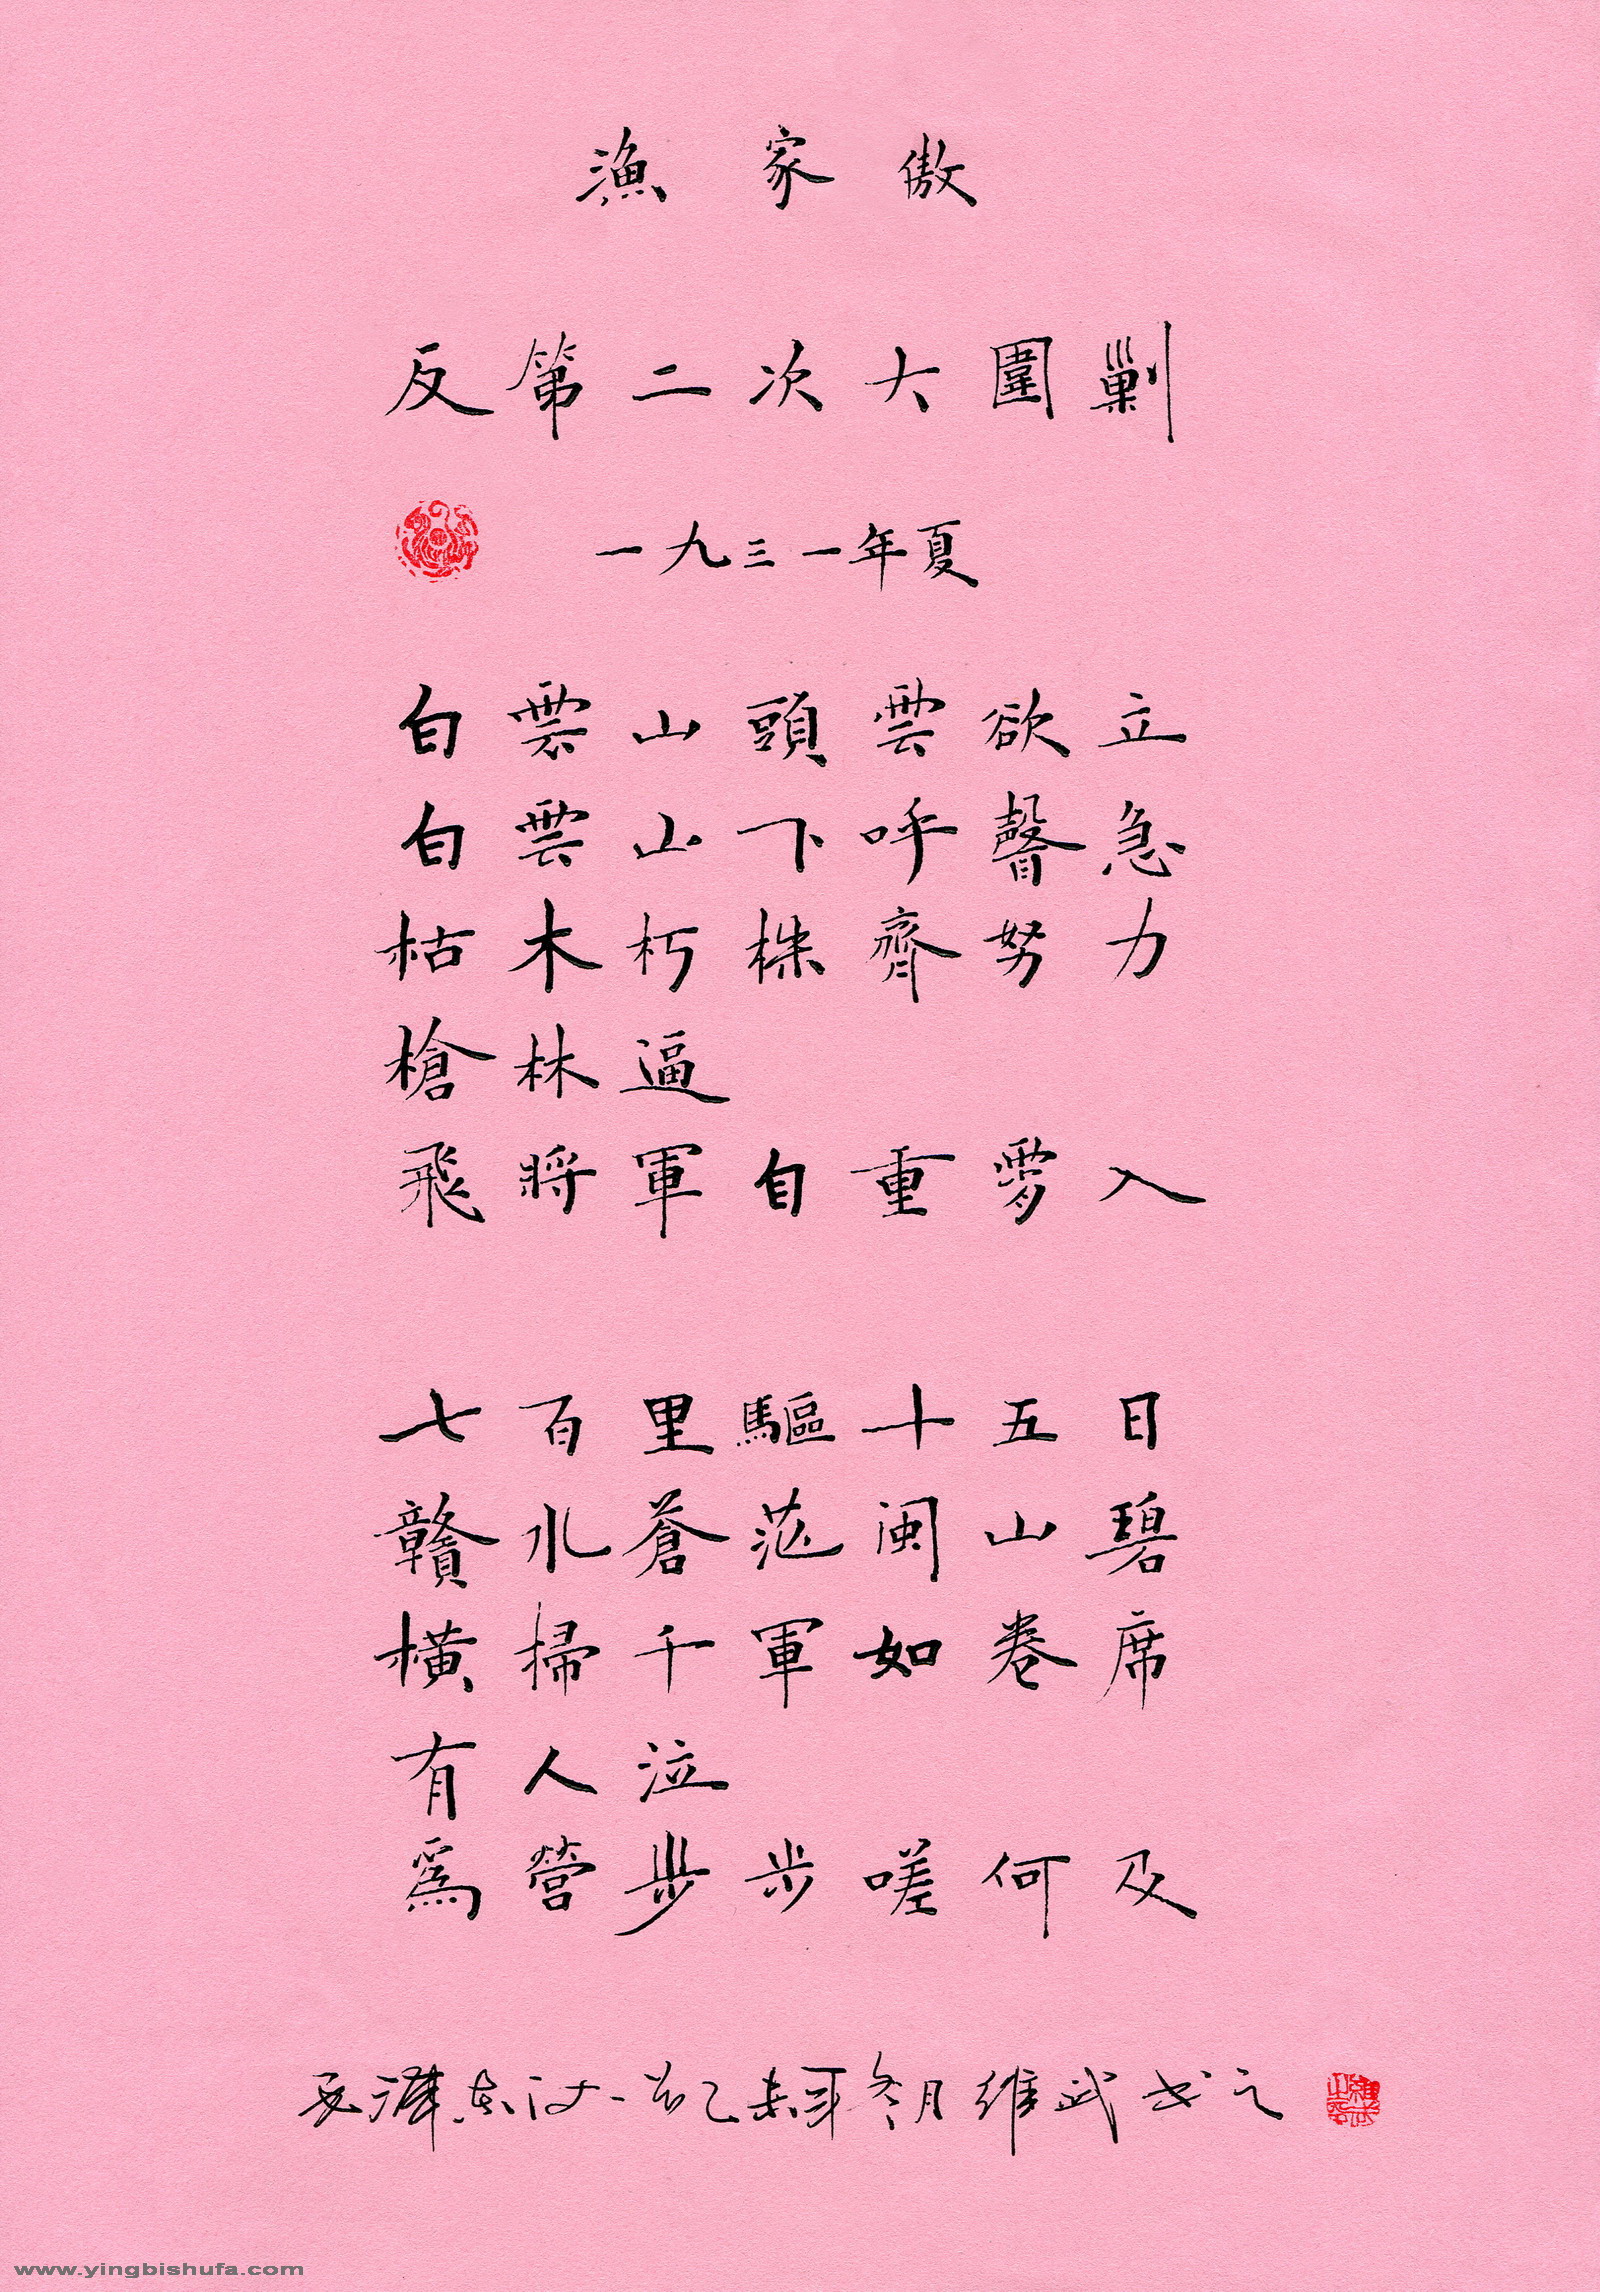 漁家傲
反第二次大圍剿
一九三一年夏
白雲山頭雲欲立
白雲山下呼聲急
枯木朽株齊努力
槍林逼
飛將軍自重霄入
七百里驅十五日
贛水蒼茫闽山碧
橫掃千軍如卷席
有人泣
爲營步步嗟何及
毛澤东词一首乙未年冬月維武书之
www.yingbishufa.com